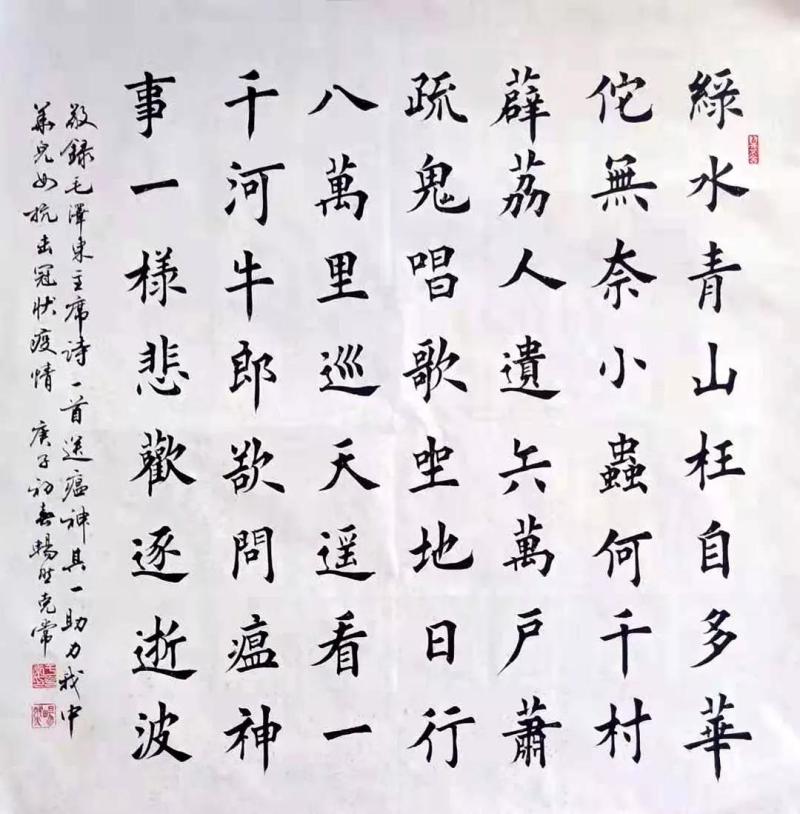 綠水青山枉自多華
佗無奈小蟲何千村
薜荔人遺矢萬戶蕭
疏鬼唱歌坐地日行
八萬里巡天遥看一
千河牛郎欲問瘟神
事一樣悲歡逐逝波
敬録毛澤東主席詩一首送瘟神其一助力我中
華兒女抗击冠狀疫情 庚子初春